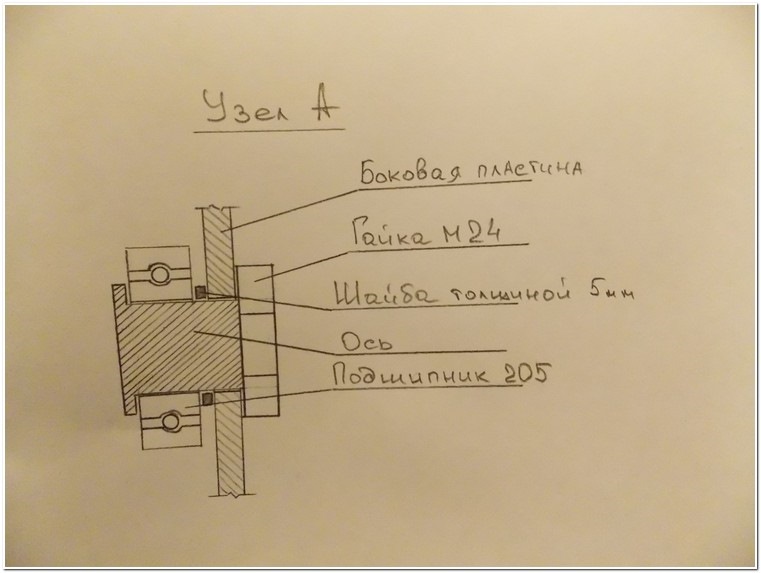 Узел А
Боковая пластина
Гайка М24
Шайба толщиной 5мм
Ось
Подшипник 205